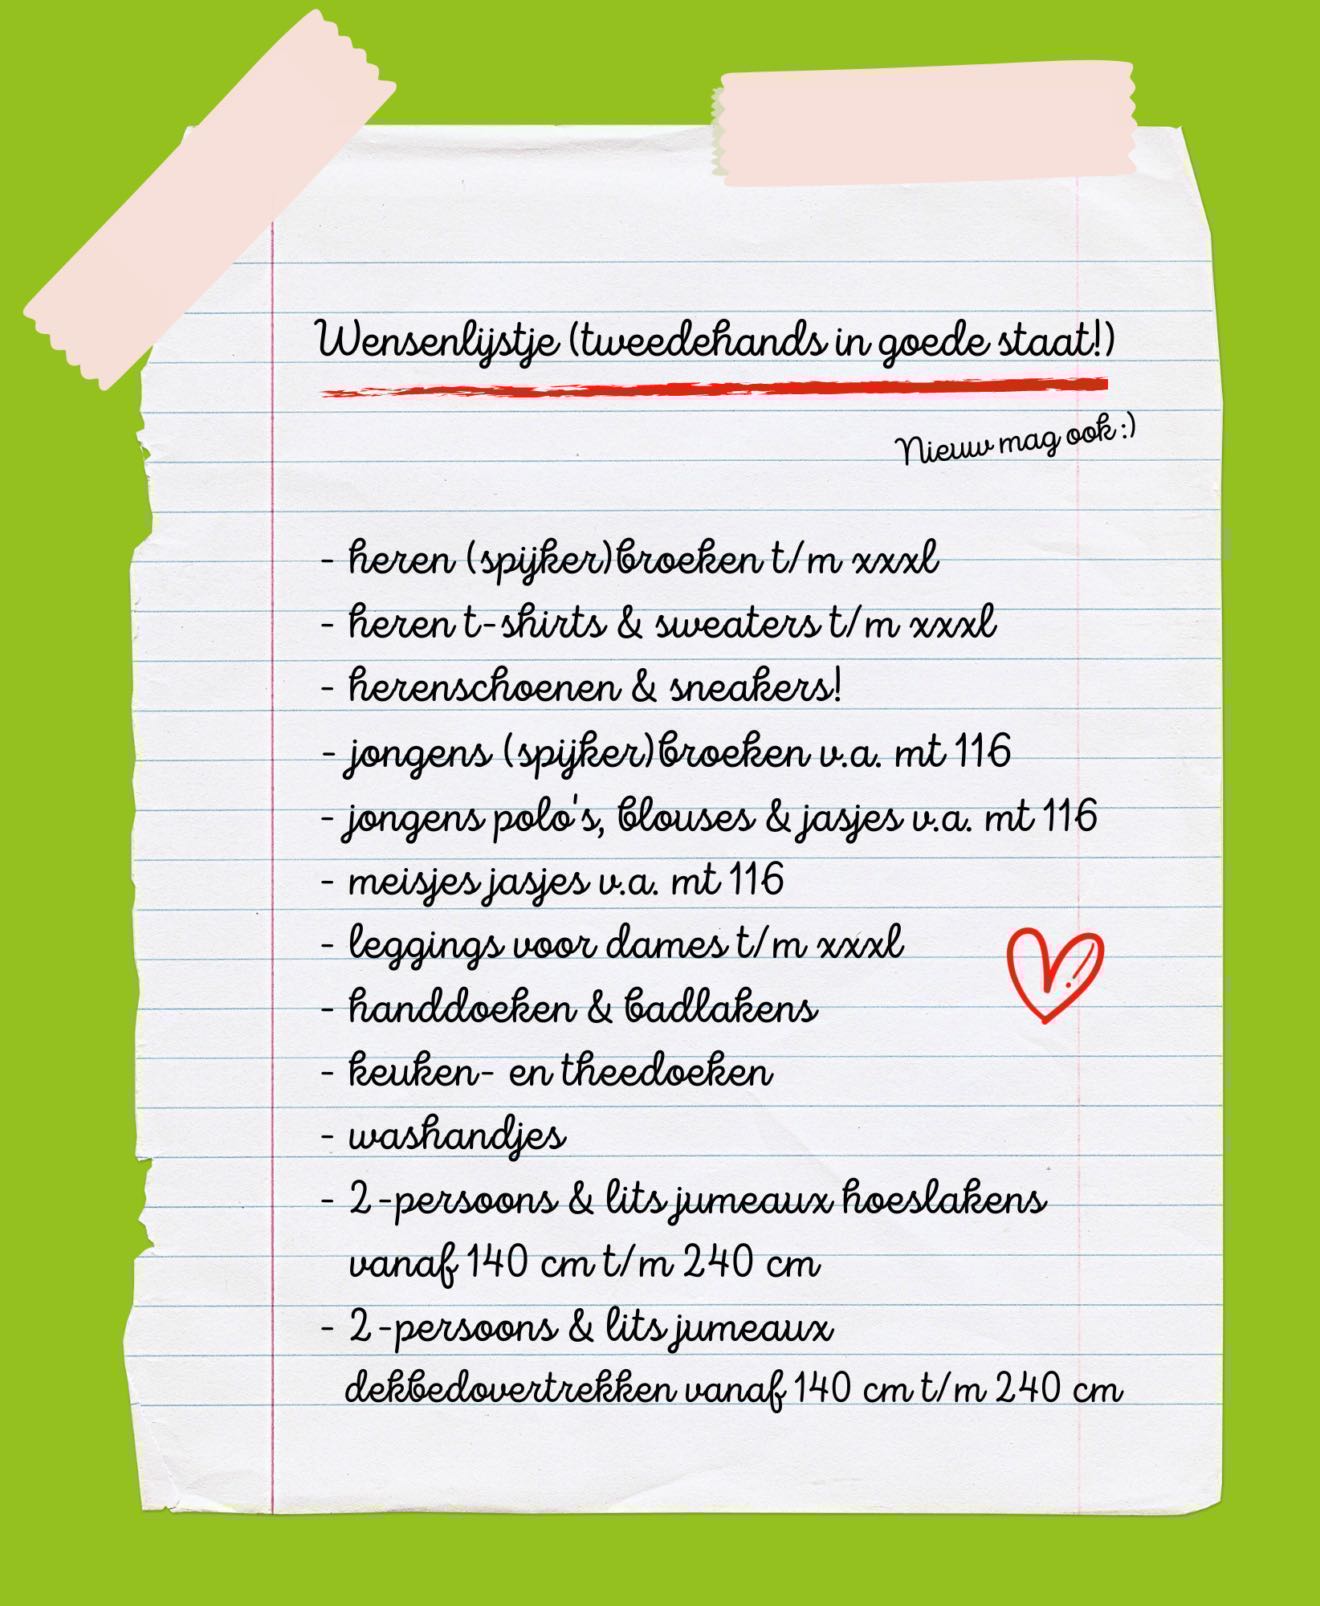 Wensenlijstje (tweedehands in goede staat!)
Nieuw mag ook :)
- heren (spijker)broeken t/m xxxl
- heren t-shirts & sweaters t/m xxxl
- herenschoenen & sneakers!
- jongens (spijker)broeken v.a. mt 116
- jongens polo's, blouses & jasjes v.a. mt 116
- meisjes jasjes v.a. mt 116
- leggings voor dames t/m xxxl
- handdoeken & badlakens
- keuken- en theedoeken
- washandjes
- 2-persoons & lits jumeaux hoeslakens
vanaf 140 cm t/m 240 cm
- 2-persoons & lits jumeaux
dekbedovertrekken vanaf 140 cm t/m 240 cm